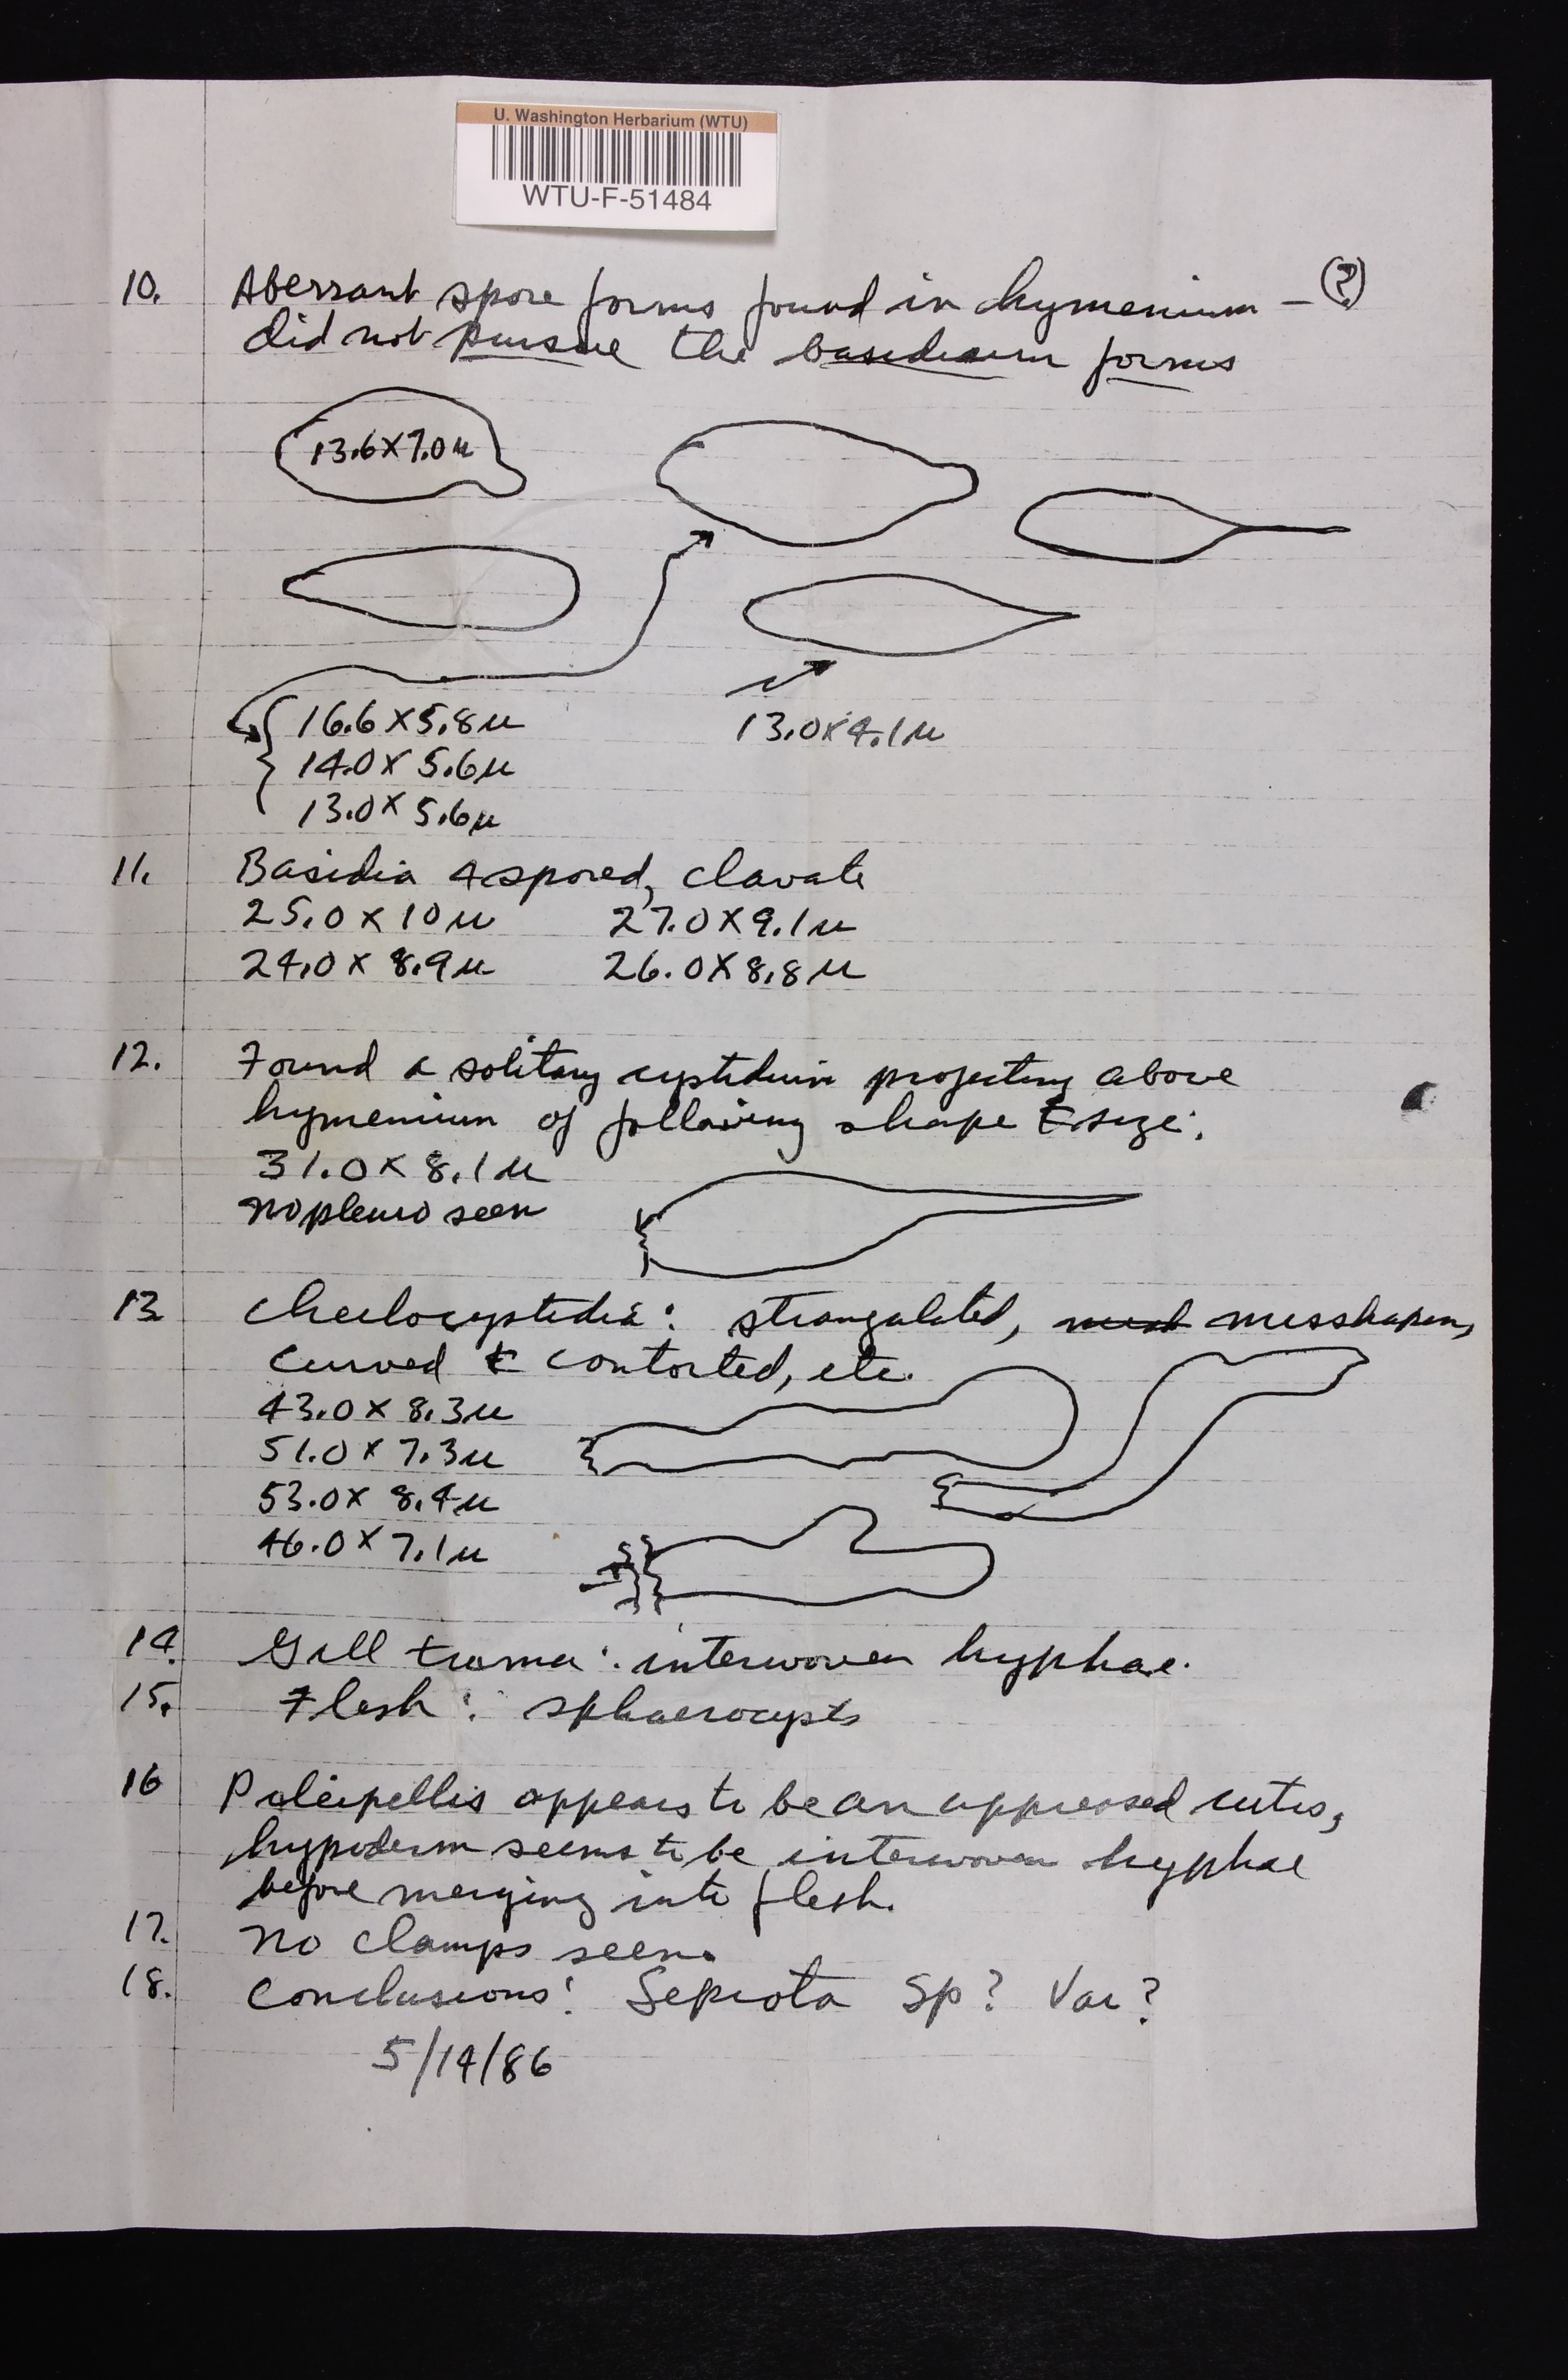 U. Washington Herbarium (WTU)
WTU-F-51484
10. Aberrant spore forms found in hymenium - (?)
did not pursue the basidium forms
13.6 X 7.0 u
16.6 X 5.8 u
14.0 X 5.6 u
13.0 X 5.6 u
13.0 X 4.1 u
11. Basidia 4 spored, clavate
25.0 X 10 u 27.0 X 9.1 u
24.0 X 8.9 u 26.0 X 8.8 u
12. Found a solitary cystidium projecting above
hymenium of following shape & size:
31.0 X 8.1 u
no pleuro seen
13 Cheilocystidia: strangulated, misshapen,
curved & contorted, etc.
43.0 X 8.3 u
51.0 X 7.3 u
53.0 X 8.4 u
46.0 X 7.1 u
14. Gill trama: interwoven hyphae.
15. Flesh: sphaerocysts
16 Pileipellis appears to be an appressed cutis,
hypoderm seems to be interwoven hyphae
before merging into flesh.
17. No clamps seen.
18. Conclusions: Lepiota Sp? Var?
5/14/86